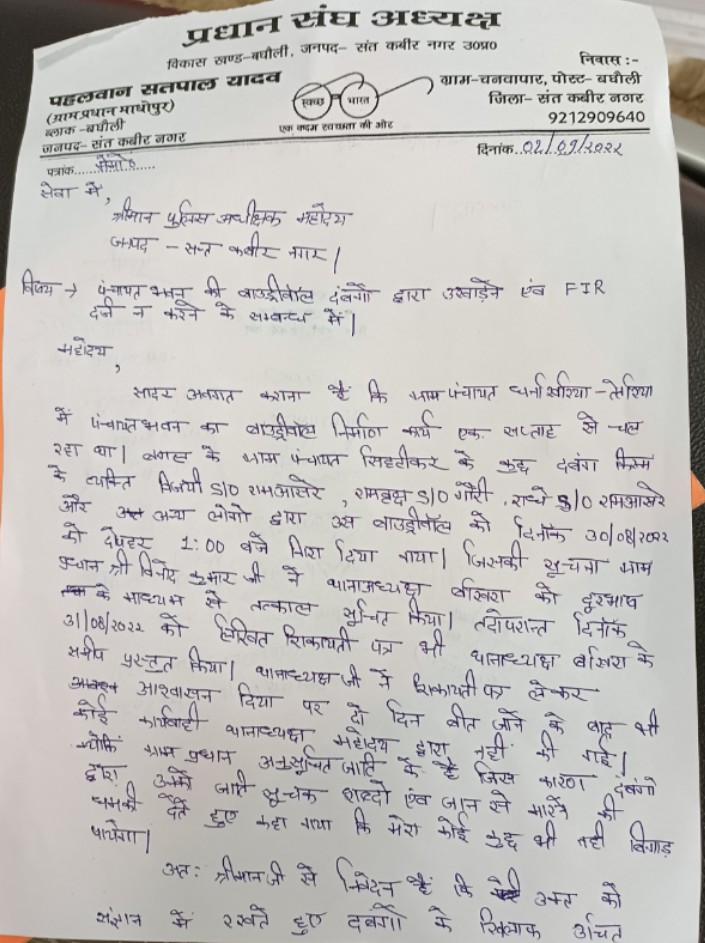 प्रधान संघ अध्यक्ष
विकास खण्ड-बघौली, जनपद- संत कबीर नगर उ०प्र०
पहलवान सतपाल यादव
(ग्राम.प्रधान माधोपुर)
ब्लाक -बघौली
जनपद- संत कबीर नगर
स्वच्छ भारत
एक कदम स्वच्छता की ओर
निवास :-
ग्राम-चनवापार, पोस्ट- बघौली
जिला- संत कबीर नगर
9212909640
पत्रांक....
दिनांक..02/09/2022
सेवा में,
श्रीमान पुलिस अधीक्षक महोदय
जनपद - सन्त कबीर नगर |
विषय → पंचायत भवन की बाउड्रीवॉल दबंगों द्वारा उखाड़ने एंव FIR
दर्ज न करने के सम्बन्ध में |
महोदय,
सादर अवगत कराना है कि ग्राम पंचायत
में पंचायत भवन का बाउड्रीवॉल निर्माण कार्य एक सप्ताह से चल
रहा था | बगल के ग्राम पंचायत सिहटीकर के कुछ दबंग किस्म
के व्यक्ति विजयी S/O रामआसरे, रामबृक्ष S/O गौरी, राध्ये S/O रामआसरे
और अन्य लोगों द्वारा उस बाउड्रीवॉल को दिनांक 30/08/2022
को दोपहर 1:00 बजे गिरा दिया गया | जिसकी सूचना ग्राम
प्रधान श्री विनोद कुमार जी ने थानाअध्यक्ष बखिरा को दूरभाष
के माध्यम से तत्काल सूचित किया | तदोपरान्त दिनांक
31/08/2022 को लिखित शिकायती पत्र भी थानाध्यक्ष बखिरा के
समीप प्रस्तुत किया | थानाध्यक्ष जी ने शिकायती पत्र लेकर
आश्वासन दिया पर दो दिन बीत जाने के बाद भी
कोई कार्यवाही थानाध्यक्ष महोदय द्वारा नहीं की गई |
क्योंकि ग्राम प्रधान अनुसूचित जाति के है जिस कारण दबंगो
द्वारा उनको जाति सूचक शब्दो एंव जान से मारने की
धमकी देते हुए कहा गया कि मेरा कोई कुछ भी नही बिगाड़
पायेगा |
अतः श्रीमान जी से निवेदन है कि उक्त को
संज्ञान में रखते हुए दबंगो के खिलाफ उचित